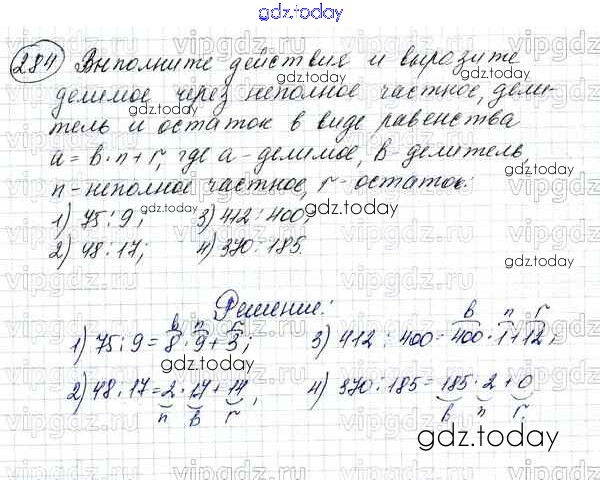 gdz.today
284 Выполните действия и выразите
делимое через неполное частное, дели-
тель и остаток в виде равенства
a = b·n + r, где a - делимое, b - делитель,
n - неполное частное, r - остаток:
1) 75 : 9; 3) 412 : 400;
2) 48 : 17; 4) 370 : 185.
Решение:
b n r b n r
1) 75 : 9 = 8 · 9 + 3; 3) 412 : 400 = 400 · 1 + 12;
2) 48 : 17 = 2 · 17 + 14, 4) 370 : 185 = 185 · 2 + 0
n b r b n r
gdz.today